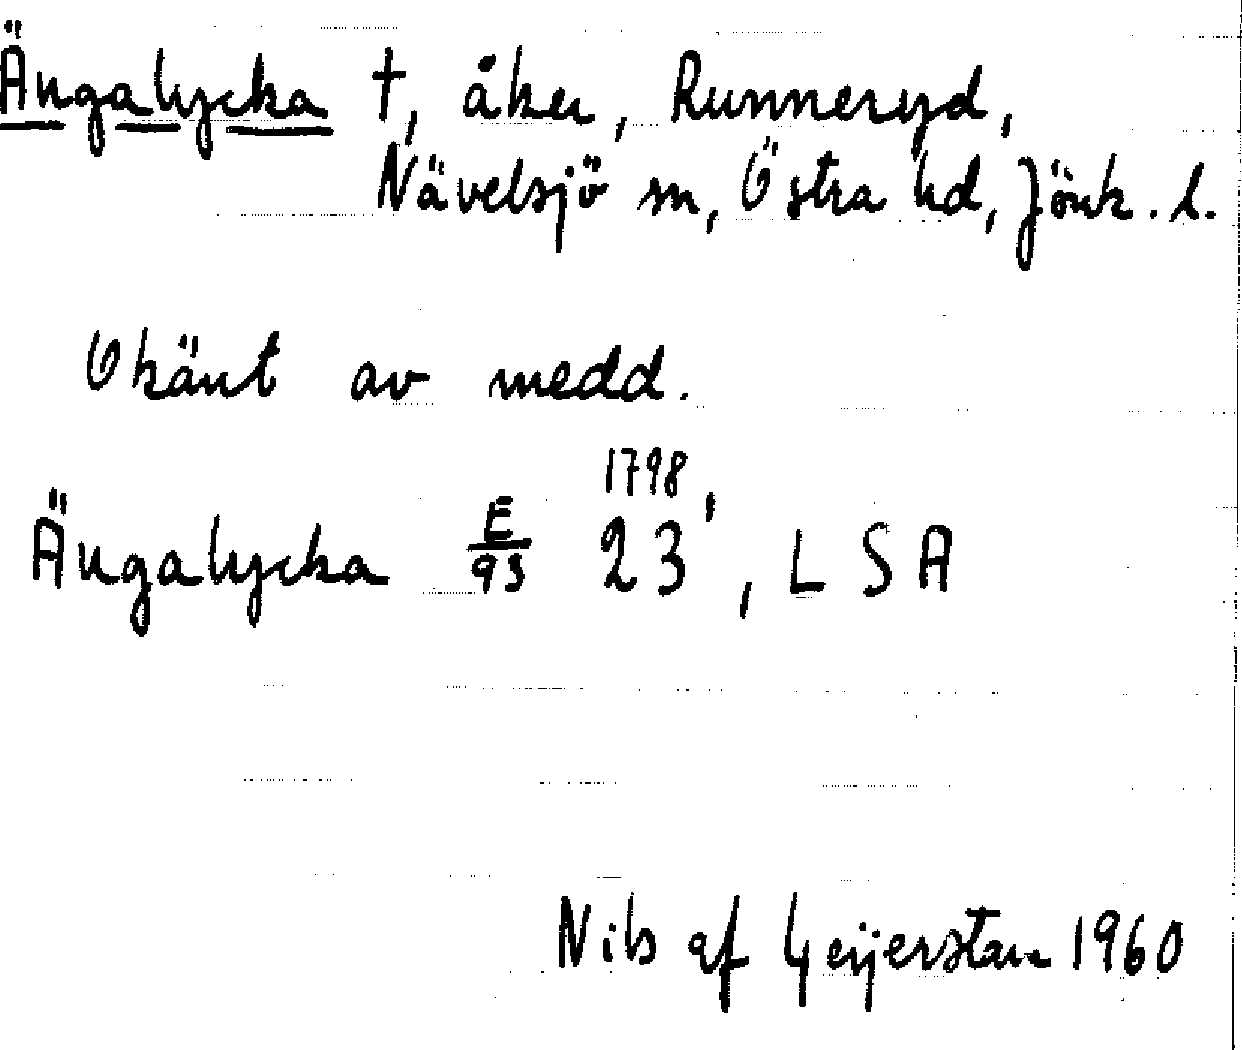 Ängalycka †, åker, Runneryd,
Nävelsjö sn, Östra hd, Jönk. l.
Okänt av medd.
Ängalycka E/93 1798, 23, LSA
Nils af Geijerstam 1960